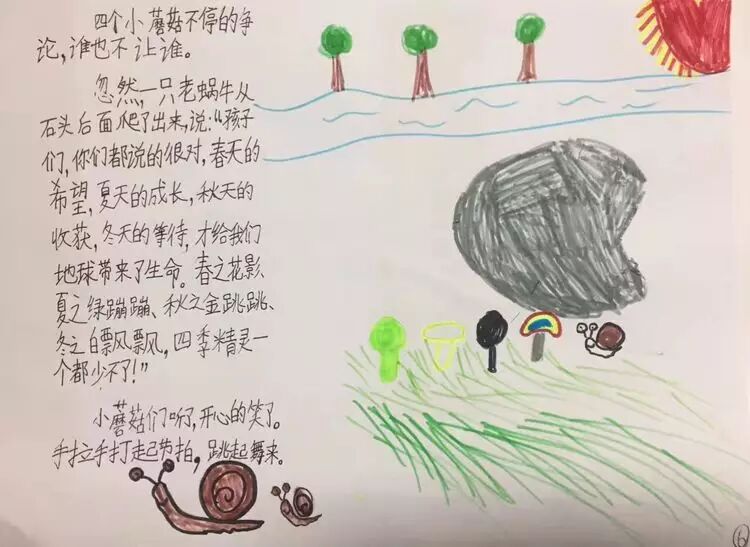 四个小蘑菇不停的争
论,谁也不让谁。
忽然,一只老蜗牛从
石头后面爬了出来,说:“孩子
们,你们都说的很对,春天的
希望,夏天的成长,秋天的
收获,冬天的等待,才给我们
地球带来了生命。春之花影、
夏之绿蹦蹦、秋之金跳跳、
冬之白飘风飘,四季精灵一
个都少不了!”
小蘑菇们听了,开心的笑了。
手拉手打起节拍,跳起舞来。
6